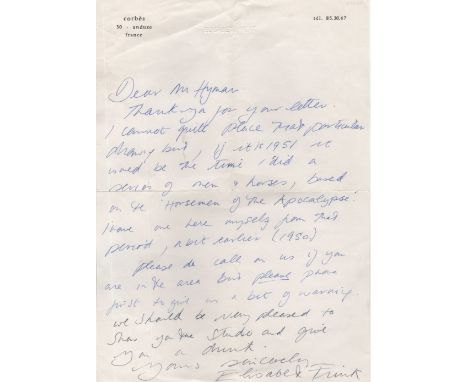 corbès
30 - anduze
france
tél. 85.30.67
Dear Mr Hyman
Thank you for your letter.
I cannot quite place that particular
drawing but, if it is 1951 it
would be the time I did a
series of men & horses, based
on the 'Horsemen of the Apocalypse'.
I have one here myself from that
period, a bit earlier (1950)
please do call on us if you
are in the area but please phone
first to give us a bit of warning.
we should be very pleased to
show you the studio and give
you a drink.
Yours sincerely
Elisabeth Frink